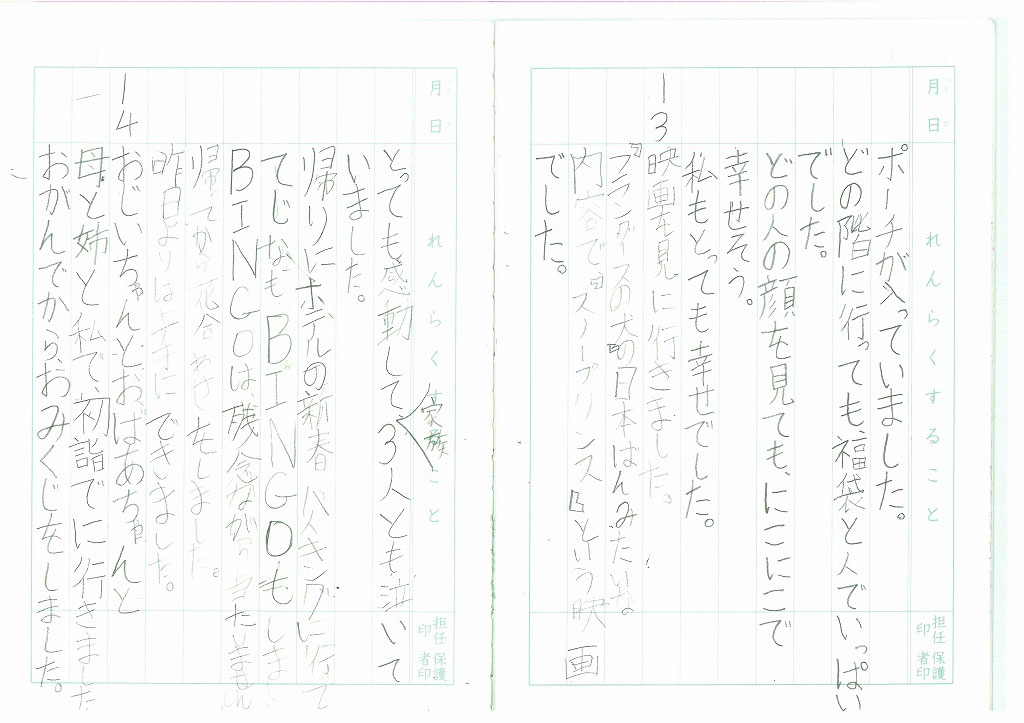 月日 れんらくすること 担任印 保護者印
ポーチが入っていました。
どの階に行っても、福袋と人でいっぱい
でした。
どの人の顔を見ても、にこにこで
幸せそう。
私もとっても幸せでした。
13 映画を見に行きました。
『フランダースの犬』の日本ばんみたいな
内容で『スノープリンス』という映画
でした。
月日 れんらくすること 担任印 保護者印
とっても感動して家族3人とも泣いて
いました。
帰りにホテルの新春バイキングに行って
てじなもBINGOもしまし
BINGOは、残念ながら当たりません
帰ってから花合わせをしました。
昨日よりは上手にできました。
14 おじいちゃんとおばあちゃんと
母と姉と私で、初詣でに行きました
おがんでから、おみくじをしました。